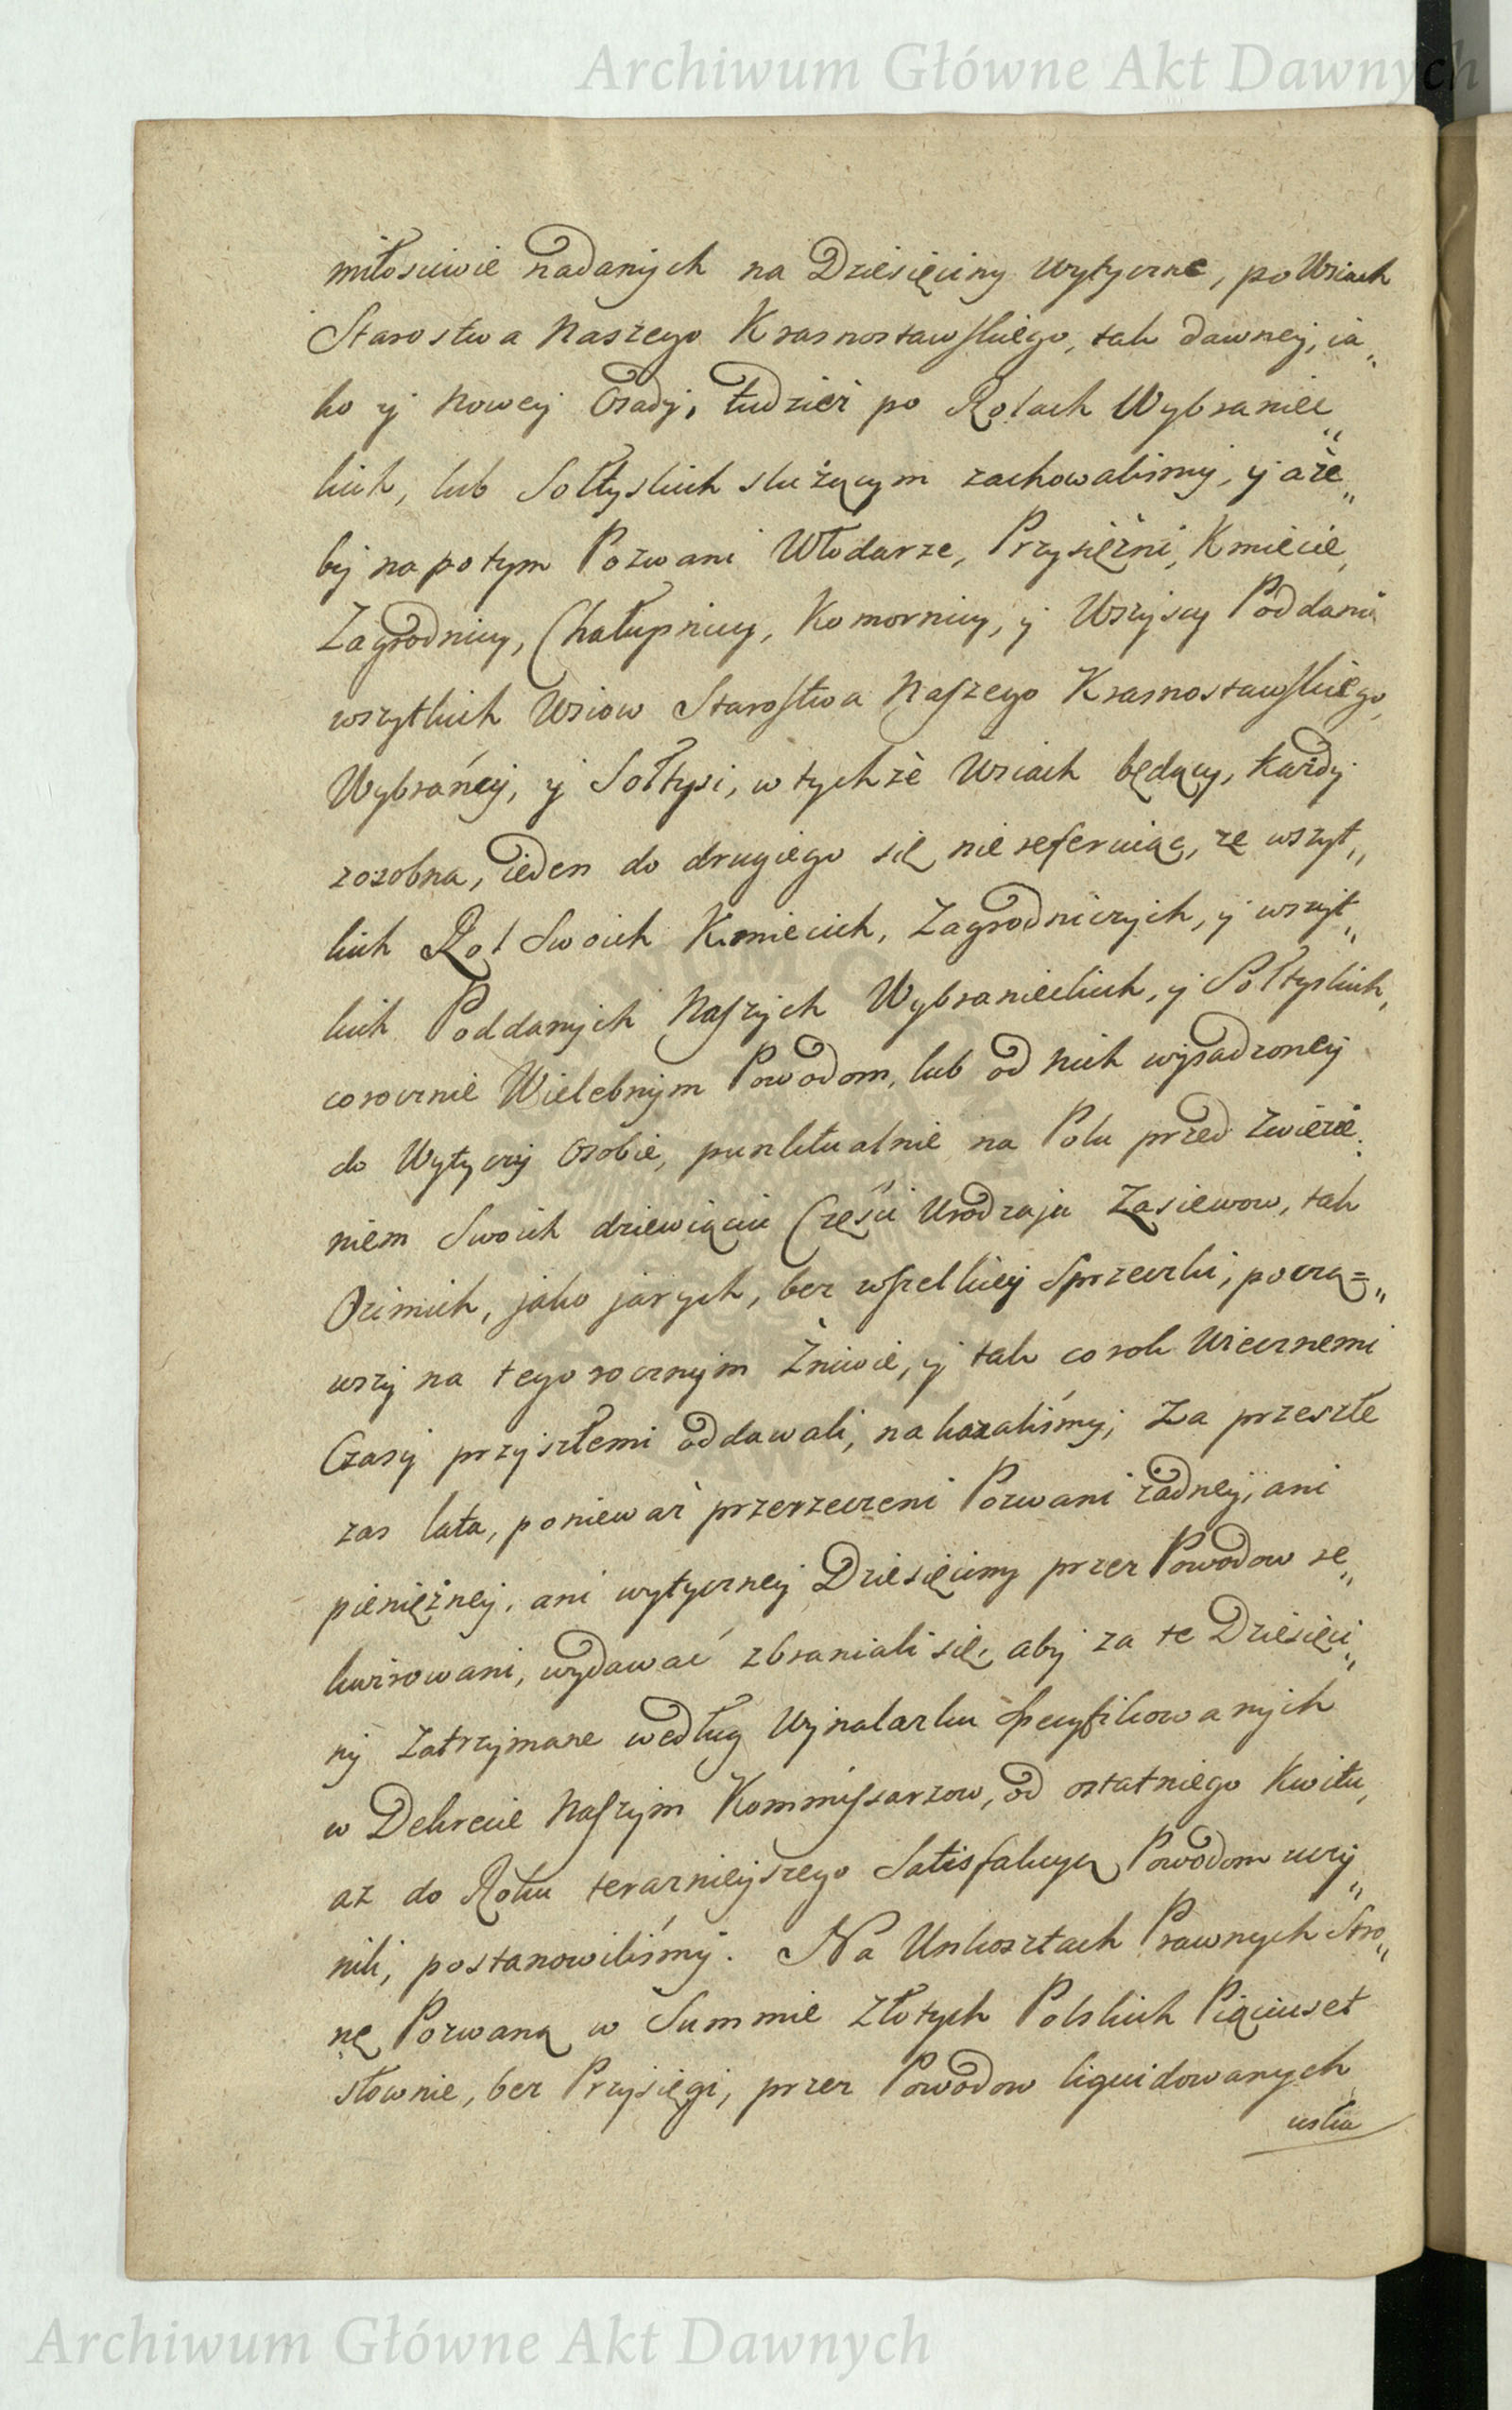 Archiwum Główne Akt Dawnych
miłosciwie nadanych na Dziesięciny wytyczne, po Wsiach
Starostwa Naszego Krasnostawskiego, tak dawney, ia„
ko y Nowey Osady, tudzież po Rolach Wybraniec„
kich, lub Sołtyskich służącym zachowalismy, y aże„
by na potym Pozwani Włodarze, Przysiężni, Kmiecie,
Zagrodnicy, Chałupnicy, Komornicy, y Wszyscy Poddani
wszytkich Wsiow Starostwa Naszego Krasnostawskiego,
Wybrańcy, y Sołtysi, w tychże Wsiach będący, każdy
zosobna, ieden do drugiego się nie referuiąc, ze wszyt„
kich Rol Swoich Kmiecich, Zagrodniczych, y wszyt„
kich Poddanych Naszych Wybranieckich, y Sołtyskich,
corocznie Wielebnym Powodom, lub od nich wysadzoney
do Wytyczy Osobie, punktualnie na Polu przed zwiezie„
niem Swoich dziewiąciu Części Urodzaju Zasiewow, tak
Ozimich, jako jarych, bez wszelkiey Sprzeczki, począ=„
wszy na tegorocznym Żniwie, y tak co rok Wiecznemi
Czasy przyszłemi oddawali, nakazaliśmy; Za przeszłe
zas lata, ponieważ przerzeczeni Pozwani żadney, ani
pieniężney, ani wytyczney Dziesięciny przez Powodow re„
kwirowani, wydawać zbraniali się, aby za te Dziesięci„
ny zatrzymane według Wynalazku Specyfikowanych
w Dekrecie Naszym Kommissarzow, od ostatniego Kwitu,
aż do Roku terazniejszego Satisfakcyą Powodom uczy„
nili, postanowiliśmy. Na Unkosztach Prawnych Stro„
nę Pozwaną w Summie Złotych Polskich Piąciuset
słownie, bez Przysięgi, przez Powodow liquidowanych
uska
Archiwum Główne Akt Dawnych